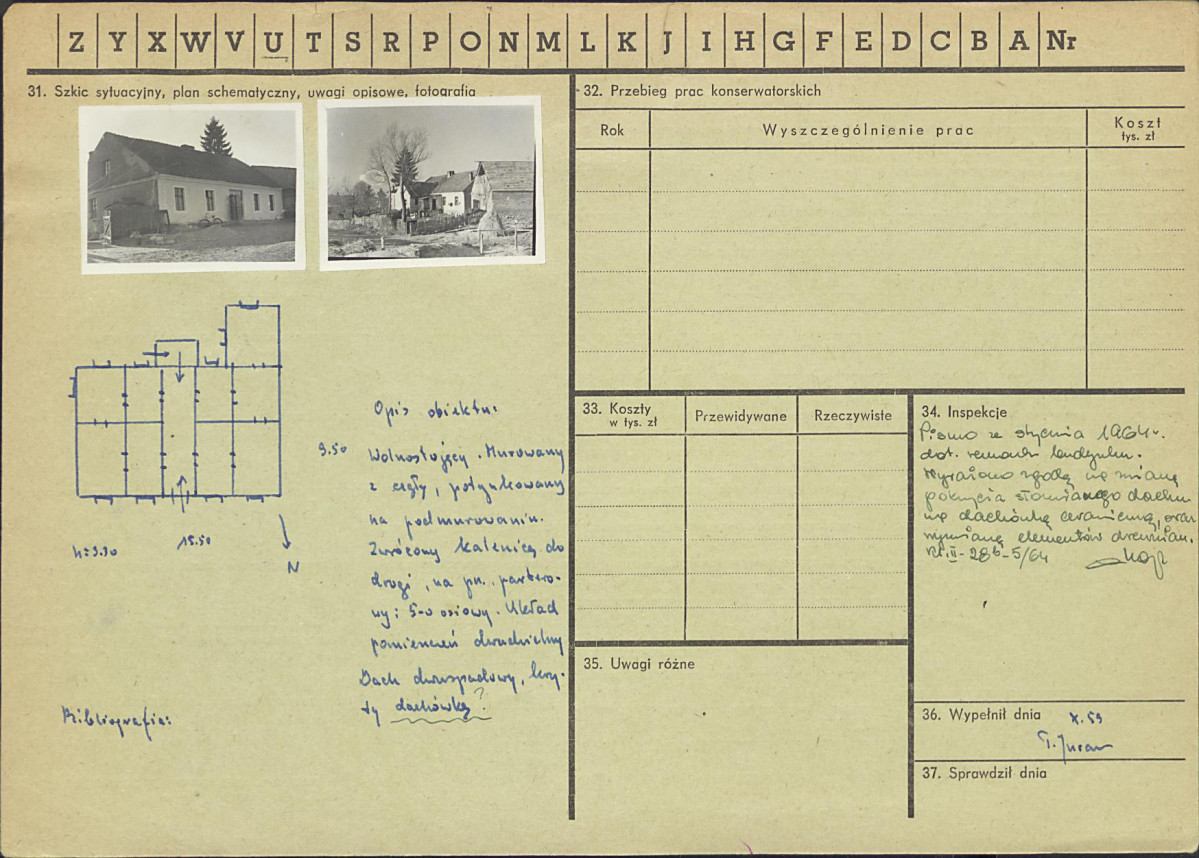 Z Y X W V U T S R P O N M L K J I H G F E D C B A Nr
31. Szkic sytuacyjny, plan schematyczny, uwagi opisowe, fotografia
h=3.30
15.50
9.50
N
Opis obiektu:
Wolnostojący. Murowany
z cegły, potynkowany
na podmurowaniu.
Zwrócony kalenicą do
drogi, na pn., partero-
wy; 5-o osiowy. Układ
pomieszczeń dwudzielny
Dach dwuspadowy, kry-
ty dachówką?
Bibliografia:
32. Przebieg prac konserwatorskich
Rok
Wyszczególnienie prac
Koszt
tys. zł
33. Koszty
w tys. zł
Przewidywane
Rzeczywiste
34. Inspekcje
Pismo ze stycznia 1964 r.
dot. remontu budynku.
Wyrażono zgodę na zmianę
pokrycia słomianego dachu
na dachówkę ceramiczną, oraz
wymianę elementów drewnian.
Kl.II-286-5/64
35. Uwagi różne
36. Wypełnił dnia X.59
37. Sprawdził dnia